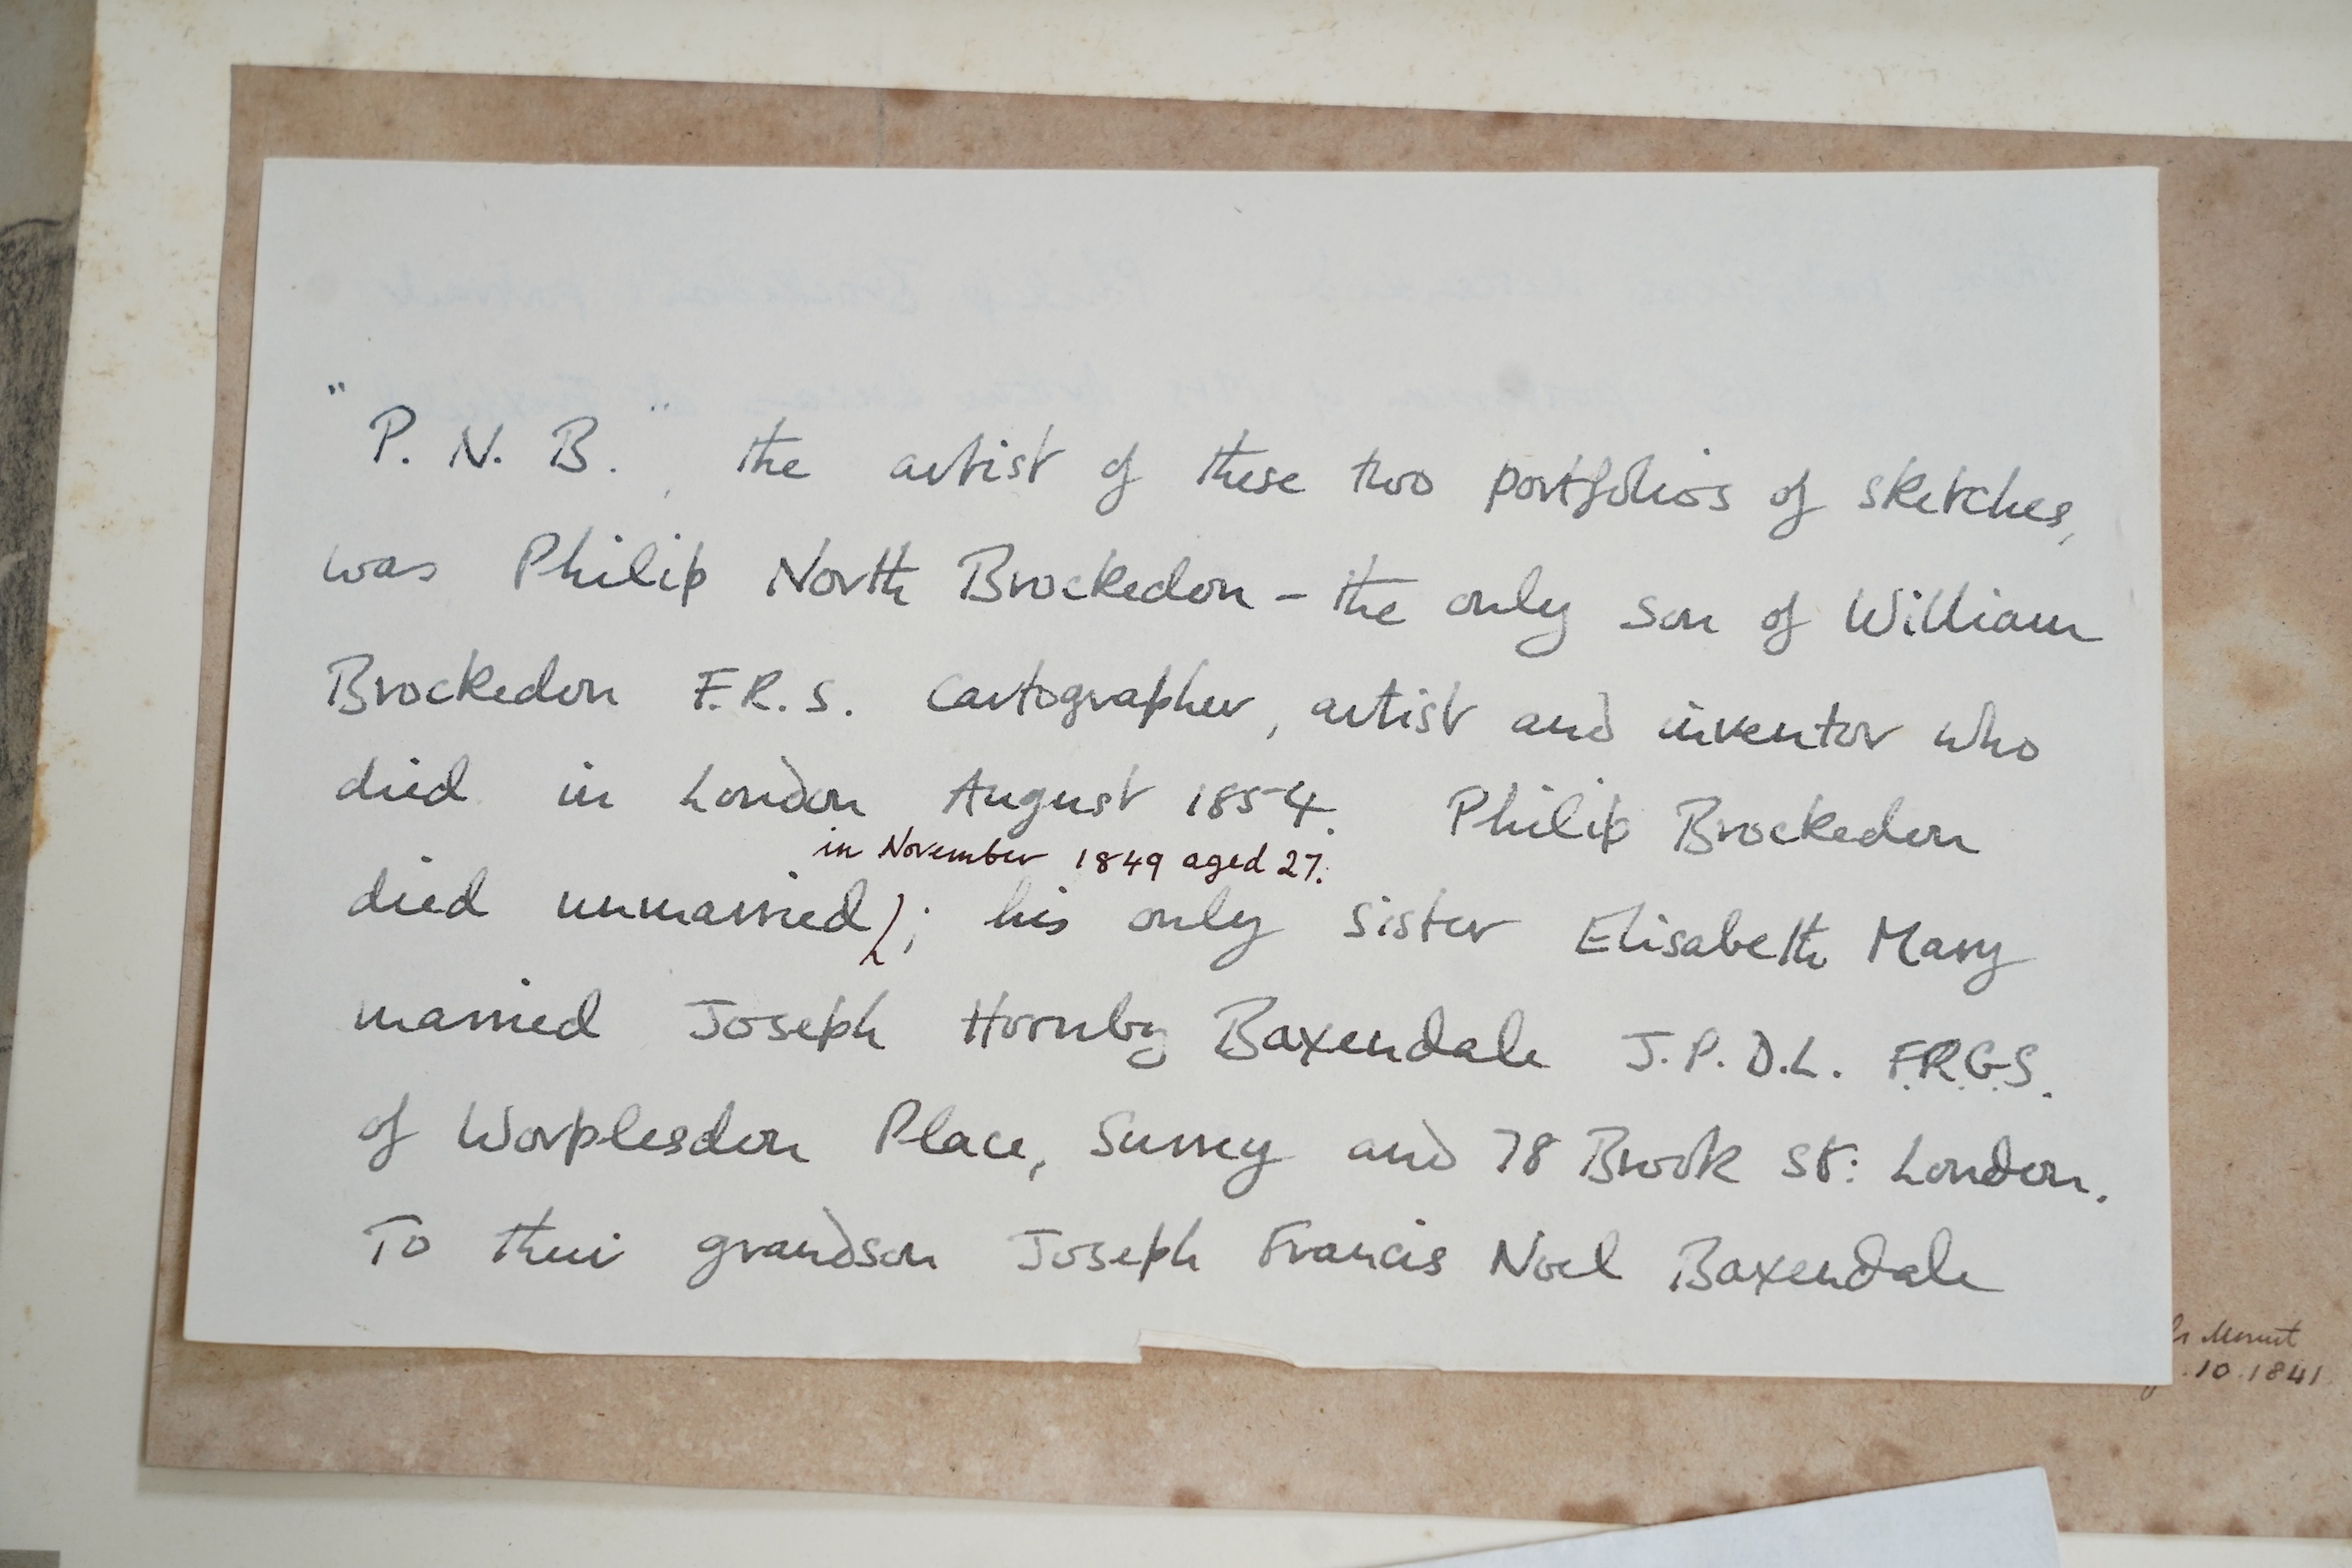 "P. N. B.", the artist of these two portfolios of sketches,
was Philip North Brockedon - the only son of William
Brockedon F.R.S. Cartographer, artist and inventor who
died in London August 1854. Philip Brockedon
in November 1849 aged 27.
died unmarried; his only sister Elisabeth Mary
married Joseph Hornby Baxendale J.P. D.L. F.R.G.S.
of Worplesdon Place, Surrey and 78 Brook St: London.
To their grandson Joseph Francis Noel Baxendale
10.1841